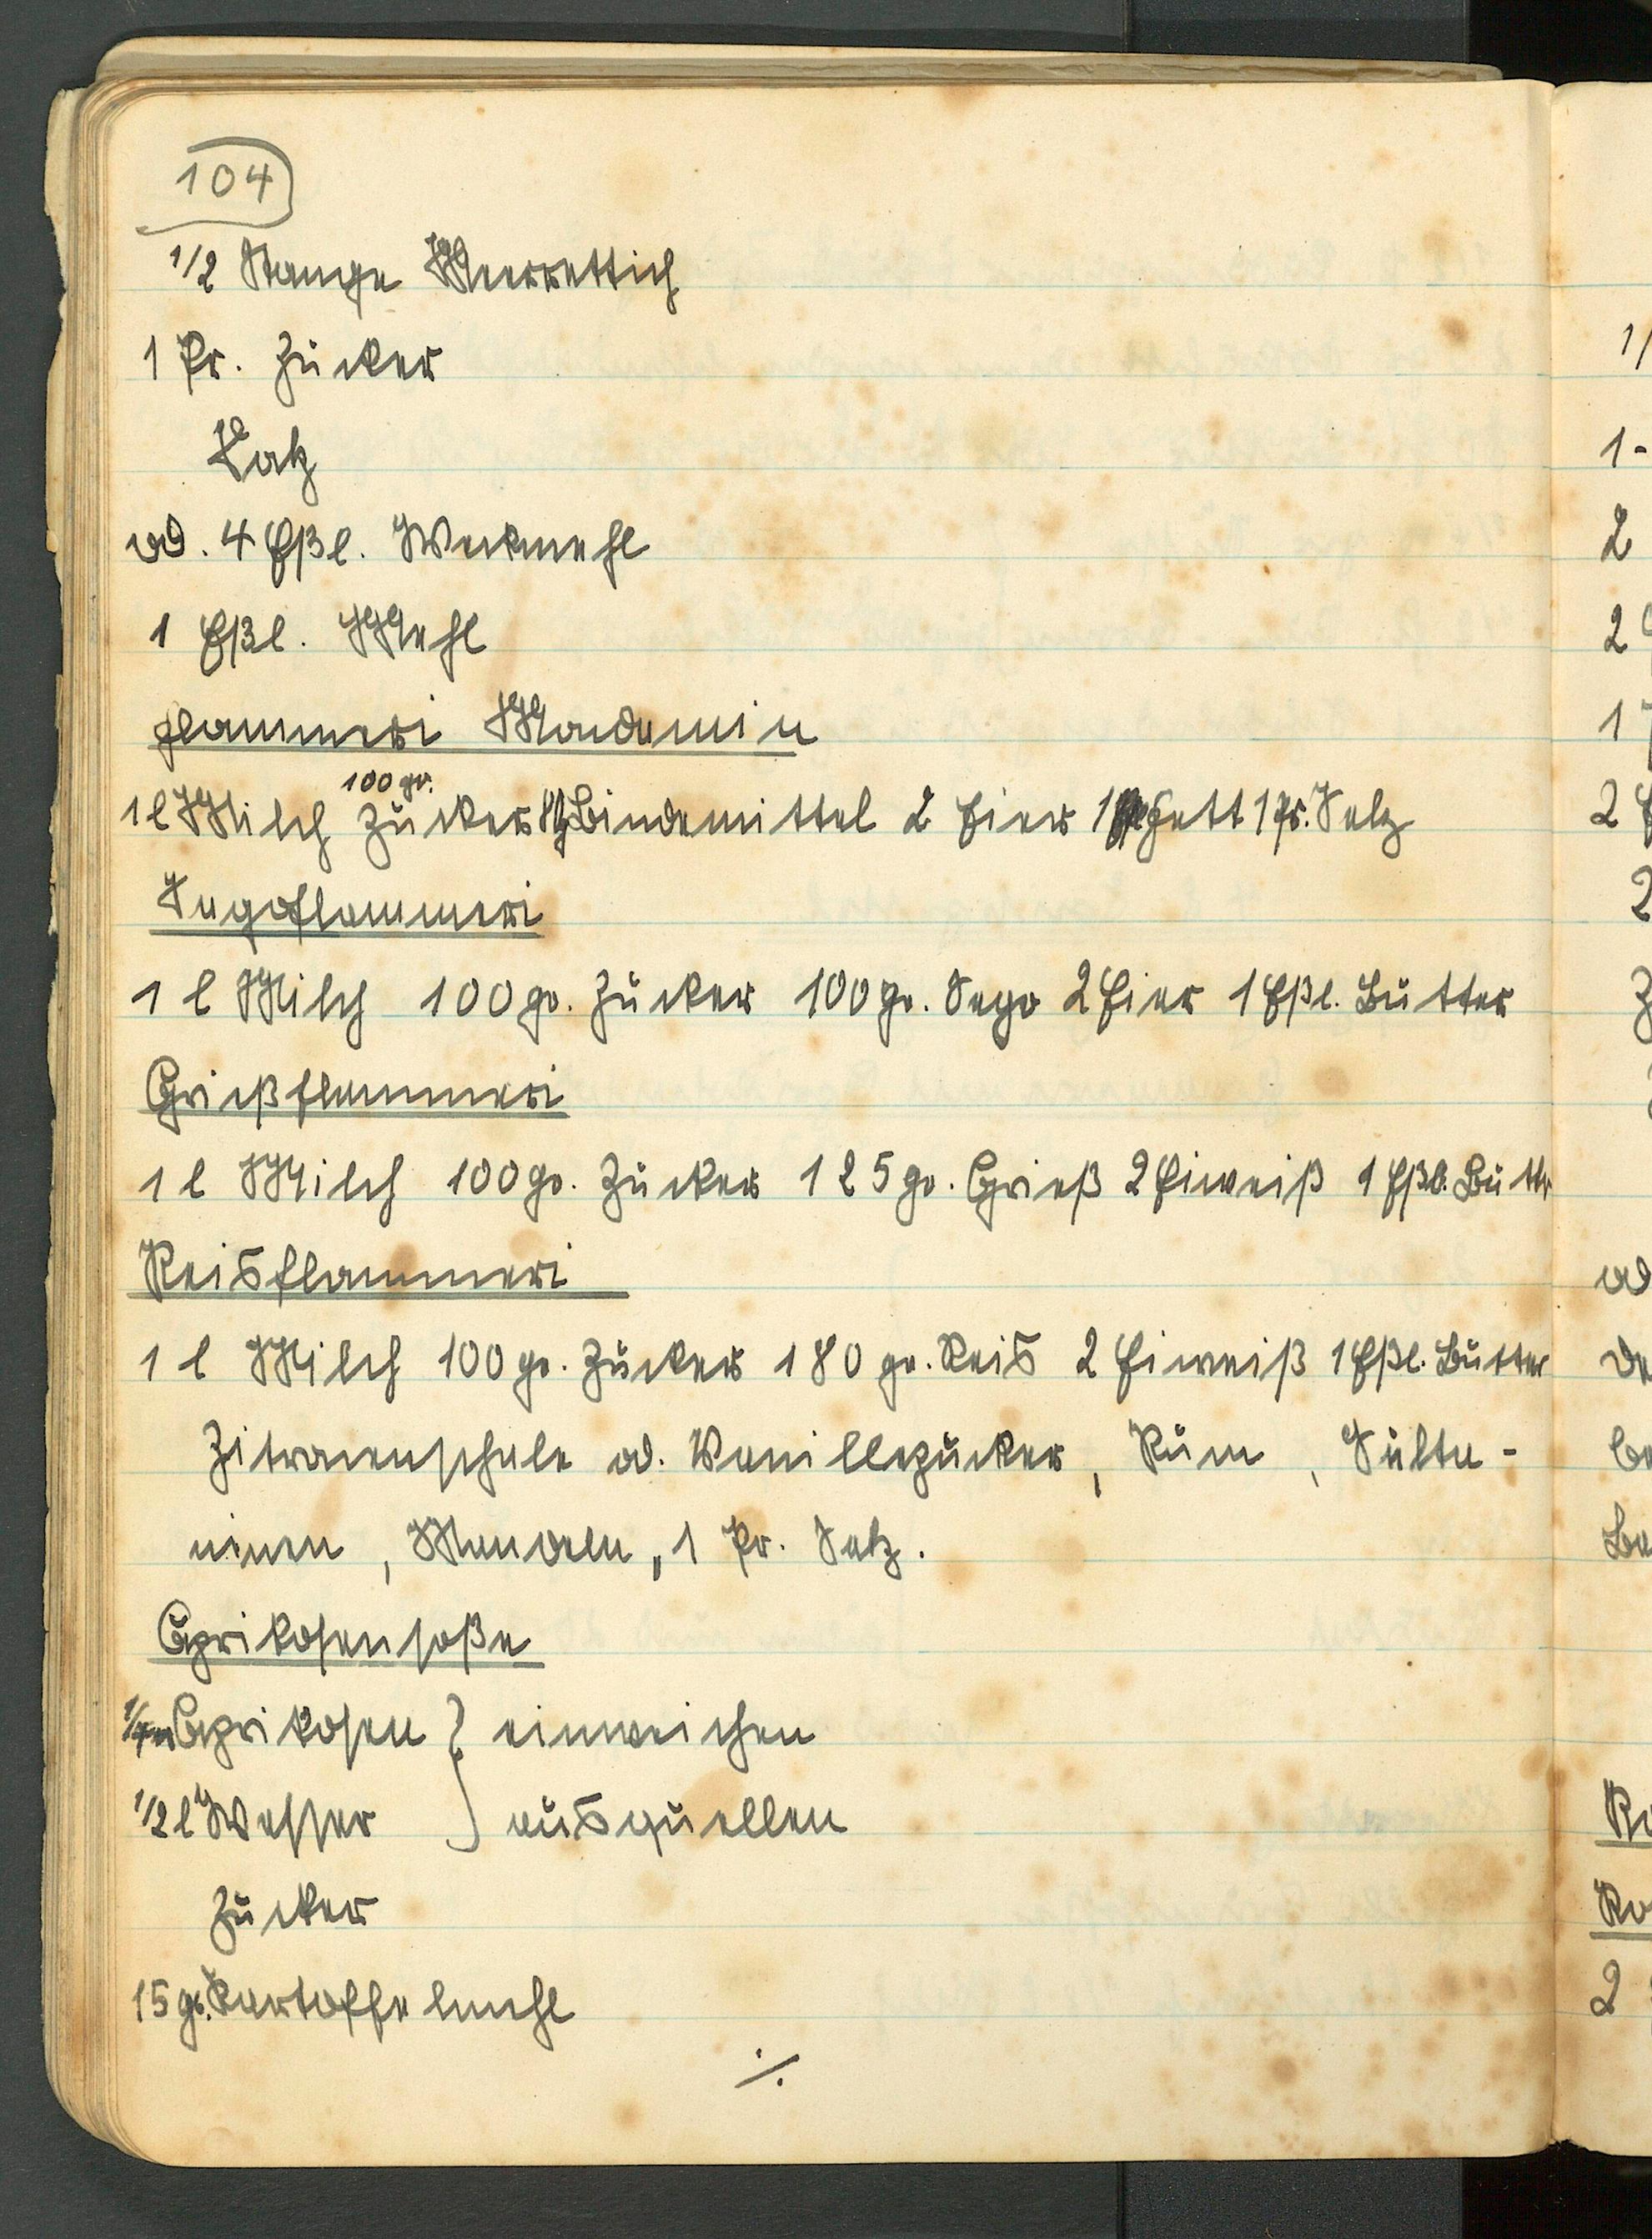 104
1/2 Stange Meerrettich
1 Pr. Zucker
Salz
od. 4 Eßl. Weckmehl
1 Eßl. Mehl
flammeri Mondamin
100 gr.
1 l Milch Zucker Bindemittel 2 Eier 1 Fett 1 Pr. Salz
Sagoflammeri
1 l Milch 100 gr. Zucker 100 gr. Sago 2 Eier 1 Eßl. Butter
Grießflammeri
1 l Milch 100 gr. Zucker 125 gr. Grieß 2 Eiweiß 1 Eßl. Buttr
Reisflammeri
1 l Milch 100 gr. Zucker 180 gr. Reis 2 Eiweiß 1 Eßl. Butter
Zitronenschale od. Vanillezucker, Rum, Sulta-
ninen, Mandeln, 1 Pr. Salz.
Aprikosensoße
Aprikosen } einweichen
1/2 l Wasser } ausquellen
Zucker
15 gr. Kartoffelmehl
./.